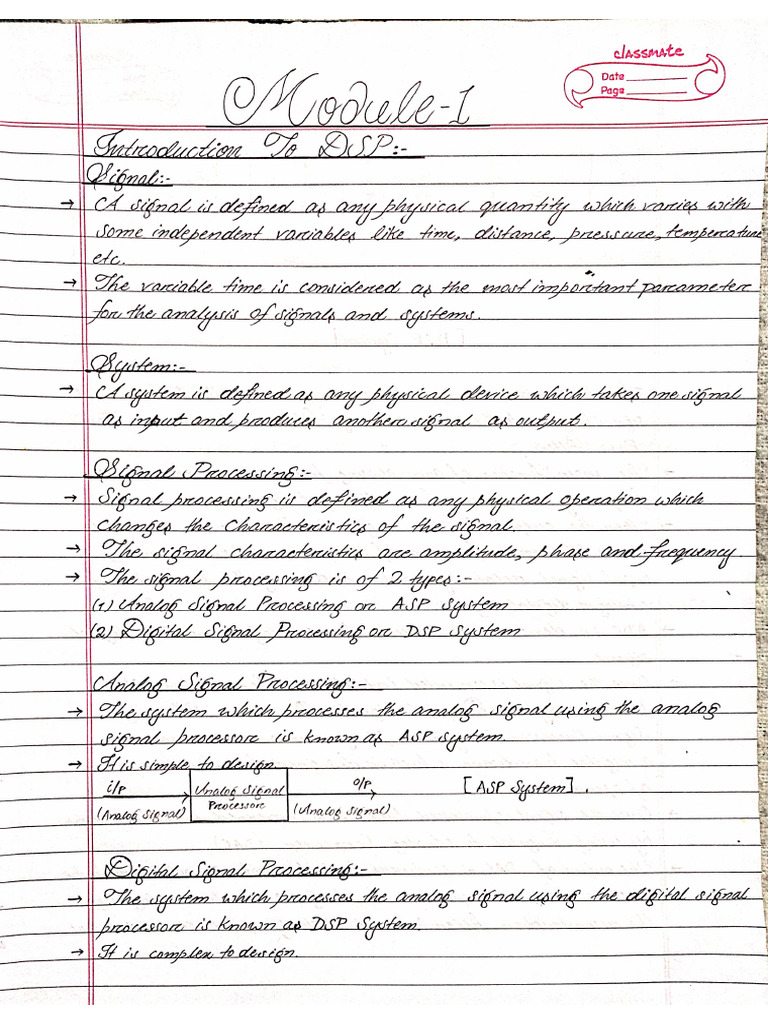 classmate
Date
Page
Module-1
Introduction To DSP:-
Signal:-
→ A signal is defined as any physical quantity which varies with
some independent variables like time, distance, pressure, temperature
etc.
→ The variable time is considered as the most important parameter
for the analysis of signals and systems.
System:-
→ A system is defined as any physical device which takes one signal
as input and produces another signal as output.
Signal Processing:-
→ Signal processing is defined as any physical operation which
changes the characteristics of the signal.
→ The signal characteristics are amplitude, phase and frequency
→ The signal processing is of 2 types:-
(1) Analog Signal Processing or ASP System
(2) Digital Signal Processing or DSP System
Analog Signal Processing:-
→ The system which processes the analog signal using the analog
signal processor is known as ASP system.
→ It is simple to design.
i/p
(Analog Signal)
Analog Signal
Processor
o/p
(Analog Signal)
[ASP System].
Digital Signal Processing:-
→ The system which processes the analog signal using the digital signal
processor is known as DSP System.
→ It is complex to design.